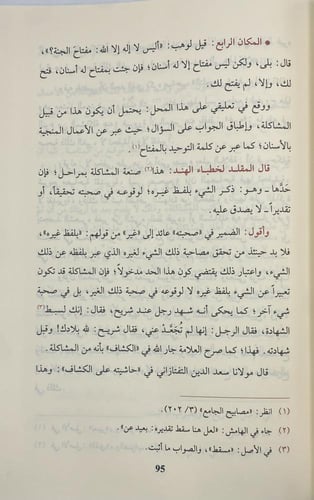 • المكان الرابع: قيل لوهب: «أليس لا إله إلا الله: مفتاحَ الجنة؟»،
قال: بلى، ولكن ليس مفتاح إلا له أسنان؛ فإن جئت بمفتاح له أسنان، فتح
لك، وإلا، لم يفتح لك.
ووقع في تعليقي على هذا المحل: يحتمل أن يكون هذا من قبيل
المشاكلة، وإطباق الجواب على السؤال؛ حيث عبر عن الأعمال المنجية
بالأسنان؛ كما عبر عن كلمة التوحيد بالمفتاح(١).
قال المقلد لخطباء الهند: هذا(٢) صنعة المشاكلة بمراحل؛ فإن
حَدَّها ـ وهو: ذكر الشيء بلفظ غيره؛ لوقوعه في صحبته تحقيقاً، أو
تقديراً ـ لا يصدق عليه.
وأقول: الضمير في «صحبته» عائد إلى «غير» من قولهم: «بلفظ غيره»،
فلا بد حينئذ من تحقق مصاحبة ذلك الشيء لغيره الذي عبر بلفظه عن ذلك
الشيء، واعتبار ذلك يقتضي كون هذا الحد مدخولاً؛ فإن المشاكلة قد تكون
تعبيراً عن الشيء بلفظ غيره لا لوقوعه في صحبة ذلك الغير، بل في صحبة
شيء آخر؛ كما يحكى أنه شهد رجل عند شريح، فقال: إنك لسبط(٣)
الشهادة، فقال الرجل: إنها لم تُجَعَّد عني، فقال شريح: لله بلادك! وقبل
شهادته. فهذا؛ كما صرح العلامة جار الله في «الكشاف» بأنه من المشاكلة.
قال مولانا سعد الدين التفتازاني في «حاشيته على الكشاف»: وهذا
(١) انظر: «مصابيح الجامع» (٣/ ٢٠٢).
(٢) جاء في الهامش: «لعل هنا سقط تقديره: بعيد عن».
(٣) في الأصل: «مسقط»، والصواب ما أثبت.
95